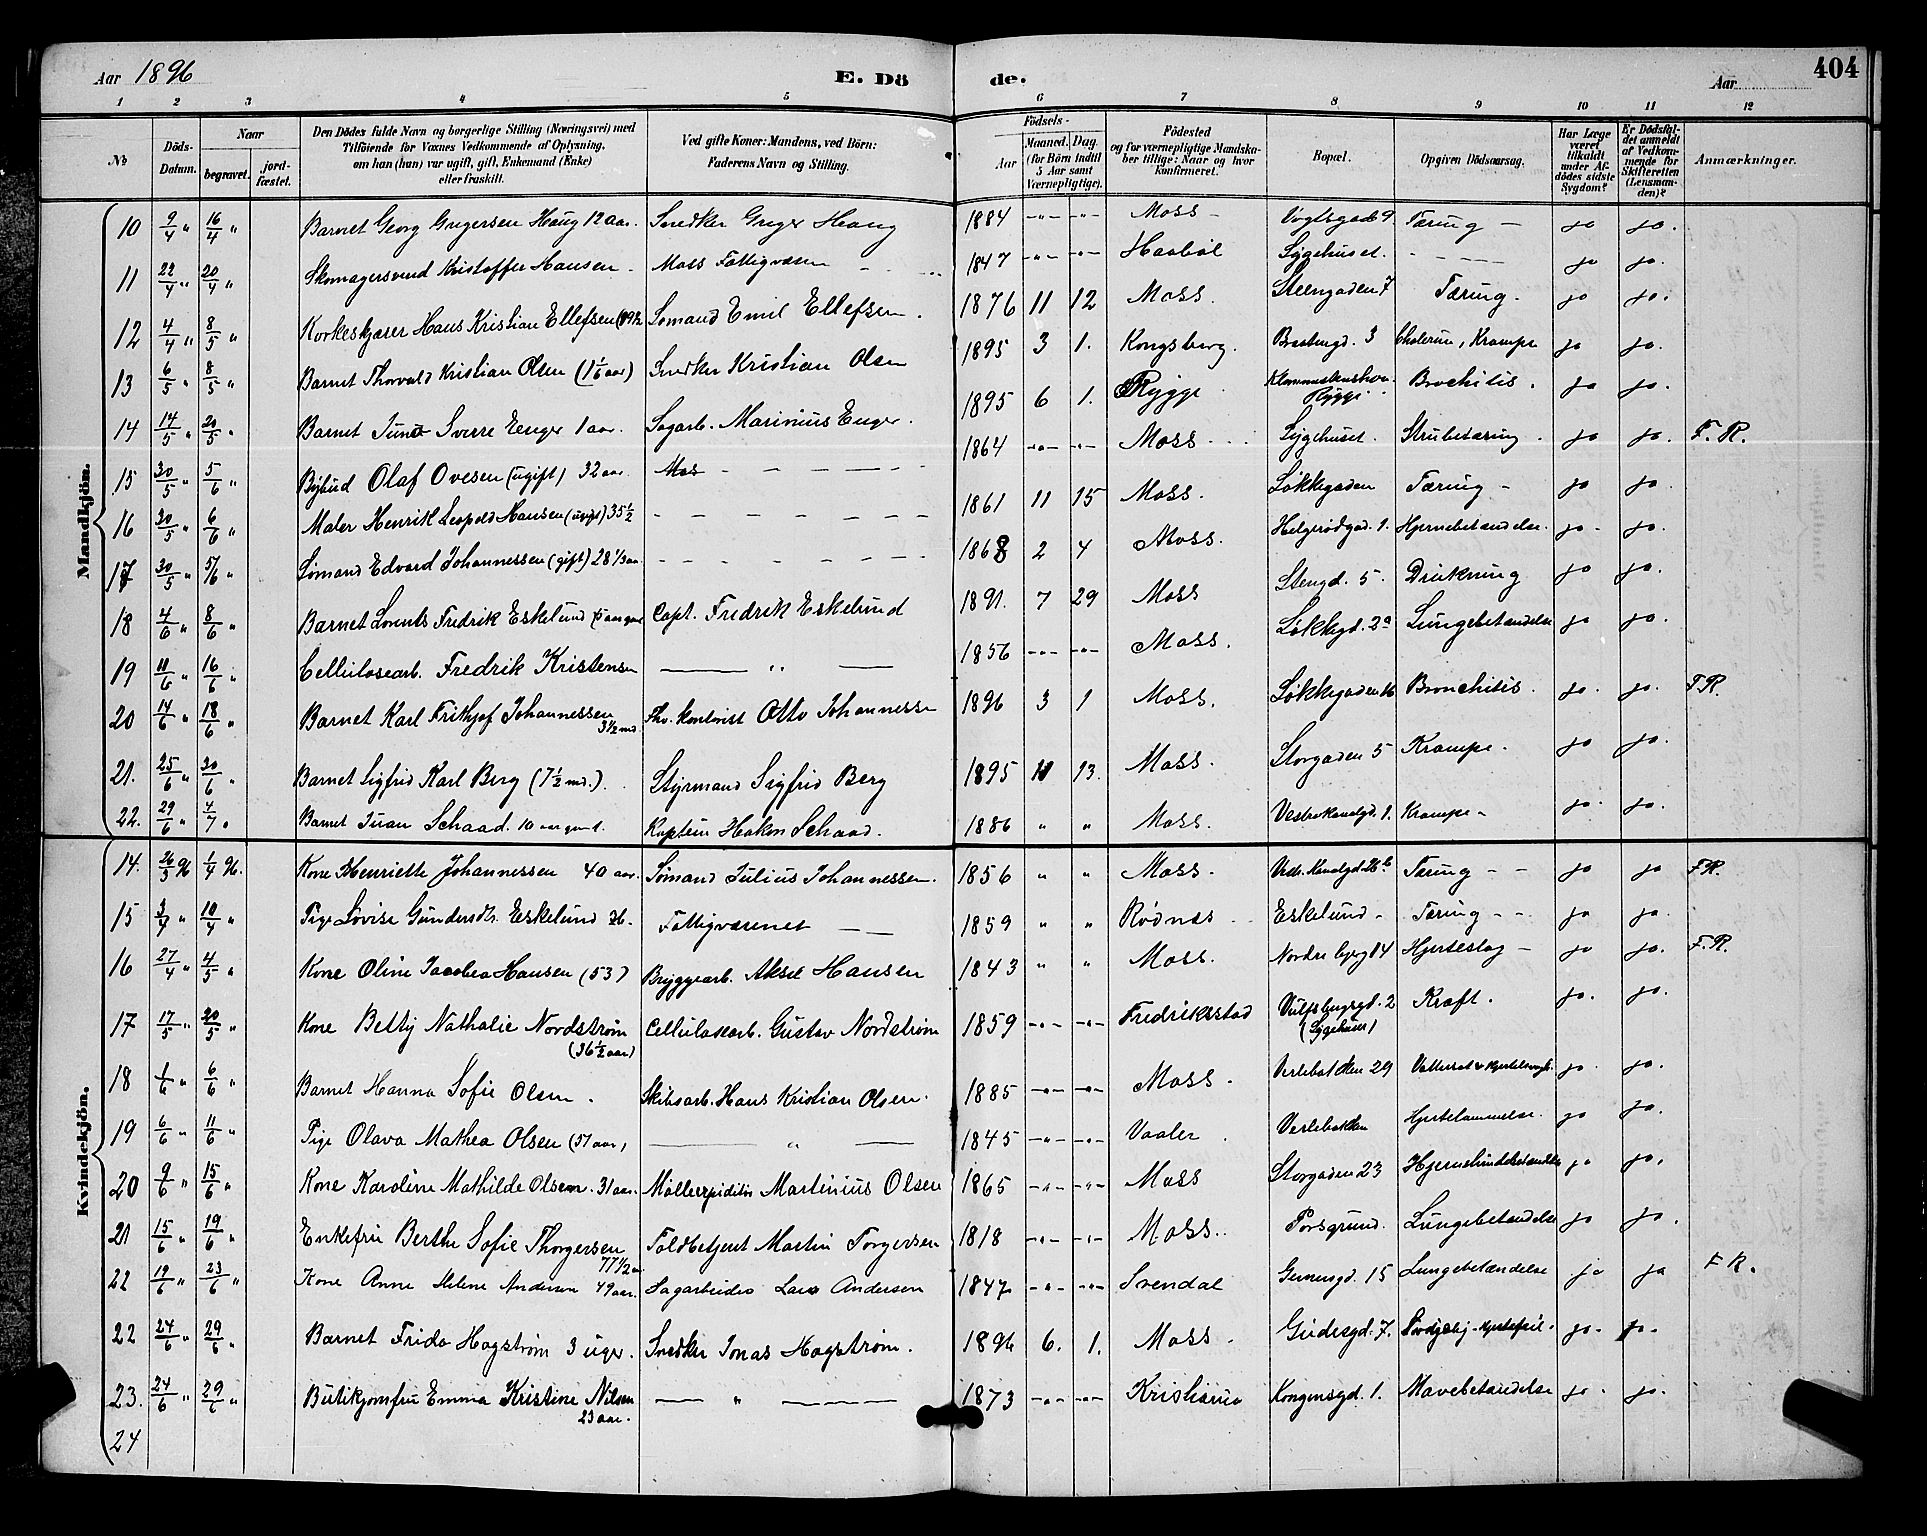 Aar 1896
E. Dö
de.
Aar
404
1 2 3 4 5 6 7 8 9 10 11 12
No
Döds-Datum.
Naar
begravet.
jord-fæstet.
Den Dødes fulde Navn og borgerlige Stilling (Næringsvei) med
Tilföiende for Voxnes Vedkommende af Oplysning,
om han (hun) var ugift, gift, Enkemand (Enke)
eller fraskilt.
Ved gifte Koner: Mandens, ved Börn:
Faderens Navn og Stilling.
Födsels-
Aar
Maaned. Dag.
(for Börn indtil
5 Aar samt
Værnepligtige).
Födested
og for værnepligtige Mandska-
ber tillige: Naar og hvor
konfirmeret.
Bopæl.
Opgiven Dödsaarsag.
Har Læge
været
tilkaldt
under Af-
dödes sidste
Sygdom?
Er Dödsfal-
det anmeldt
af Vedkom-
mende for
Skifteretten
(Lensman-
den)?
Anmærkninger.
Mandkjön.
10 9/4 " 16/4 " Barnet Georg Gregersen Haug 12 aar. Snedker Greger Haug 1884 -"- -"- Moss - Vogtsgade 9 Tæring - ja ja.
11 22/4 " 20/4 " Skomagersvend Kristoffer Hansen - Moss Fattigvæsen 1847 -"- -"- Haabøl Sygehuset. - - - - ja ja.
12 4/4 " 8/5 " Korkeskjærer Hans Kristian Ellefsen (19½ Sømand Emil Ellefsen. 1876 11 12 Moss. Steengaden 7 Tæring. ja ja.
13 6/5 " 8/5 " Barnet Thorvald Kristian Olsen (1 1/6 aar) Snedker Kristian Olsen 1895 3 1. Kongsberg. 3 Cholerine, Krampe ja ja.
14 14/5 " 20/5 " Barnet Sverre Enger 1 aar. Sagarb. Marinius Enger. 1895 6 1. Rygge Rygge Brochitis. ja ja.
15 30/5 " 5/6 " Bybud Olaf Ovesen (ugift) 32 aar. Mos - - - 1864 -"- -"- Moss Sygehuset. Strubetæring. ja ja. F. R.
16 30/5 " 6/6 " Maler Henrik Leopold Hansen (ugift) 35½ - - - 1861 11 15 Moss. Løkkegaden Tæring - ja ja.
17 30/5 " 5/6 " Sømand Edvard Johannessen (gift) 28 1/3 aar - - - 1868 2 4 Moss. Helgerødgad. 1. Hjernebetændelse. ja ja.
18 4/6 " 8/6 " Barnet Lorents Fredrik Eskelund 5 aar gml Capt. Fredrik Eskelund 1891. 7 29 Moss Stengd. 5. Drukning ja ja.
19 11/6 " 16/6 " Cellulosearb. Fredrik Kristensen — " — 1856 -"- -"- Moss. Løkkegd. 2a Lungebetændelse ja ja.
20 14/6 " 18/6 " Barnet Karl Frithjof Johannessen 3½ md. Otto Johannessen 1896 3 1 Moss. Løkkegaden 16 Bronchitis. ja. ja. F.R.
21. 25/6 " 30/6 " Barnet Sigfrid Karl Berg (7½ md.). Styrmand Sigfrid Berg 1895 11 13. Moss. Storgaden 5 Krampe. ja ja.
22. 29/6 " 4/7 " Barnet Iuan Schaad. 10 aar gml. Kaptein Hakon Schaad. 1886 " " Moss. Vestre Kanalgd. 1. Krampe - ja. ja.
Kvindekjön.
14. 26/3 96 1/4 96. Kone Henriette Johannessen 40 aar. Sømand Julius Johannessen. 1856 " " Moss. Vestr. Kanalgd. 26b Tæring - - ja ja F.R.
15 3/4 " 10/4 " Pige Lovise Gundersdtr. Eskelund 36. Fattigvæsenet — — 1859 " " Rødnæs Eskelund - Tæring - - ja ja.
16 27/4 " 4/5 " Kone Oline Jacobea Hansen (53) Bryggearb. Aksel Hansen 1843 " " Moss. Nordre byg 14 Hjerteslag - ja ja. F. R.
17 17/5 " 20/5 " Kone Betty Nathalie Nordstrøm (36½ aar) Cellulosearb. Gustav Nordstrøm 1859 -"- -"- Fredriksstad Vulfsbergsgd. 2 (Sygehuus) Kræft. ja. ja.
18 1/6 " 6/6 " Barnet Hanna Sofie Olsen. Skibsarb. Hans Kristian Olsen. 1885 -"- -"- Moss. Verlebakken 29 ja. ja.
19 6/6 " 11/6 " Pige Olava Mathea Olsen (51 aar) — " — 1845 -"- -"- Vaaler. Verlebakken Hjertelammelse. ja ja.
20 9/6 " 15/6 " Kone Karoline Mathilde Olsen. 31 aar. Martinius Olsen 1865 -"- -"- Moss Storgaden 23 Hjernehindebetændelse ja ja.
21 15/6 " 19/6 " Enkefru Berthe Sofie Thorgersen 77½ aar Toldbetjent Martin Torgersen 1818 -"- -"- Moss. Porsgrund. Lungebetændelse ja ja.
22 19/6 " 23/6 " Kone Anne Helene Andersen 49 aar. Sagarbeider Lars Andersen 1847 -"- -"- Svendal 15 Lungebetændelse ja ja F R.
22 24/6 " 29/6 " Barnet Frida Hagstrøm 3 uger. Snedker Jonas Hagstrøm. 1896 6. 1. Moss - Gudesgd. 7. Hjertefeil. ja. ja.
23. 24/6 " 29/6 " Butikjomfru Emma Kristine Nilsen 23 aar. — " — 1873 -"- -"- Kristiania Kongensgd. 1. Mavebetændelse ja. ja.
24